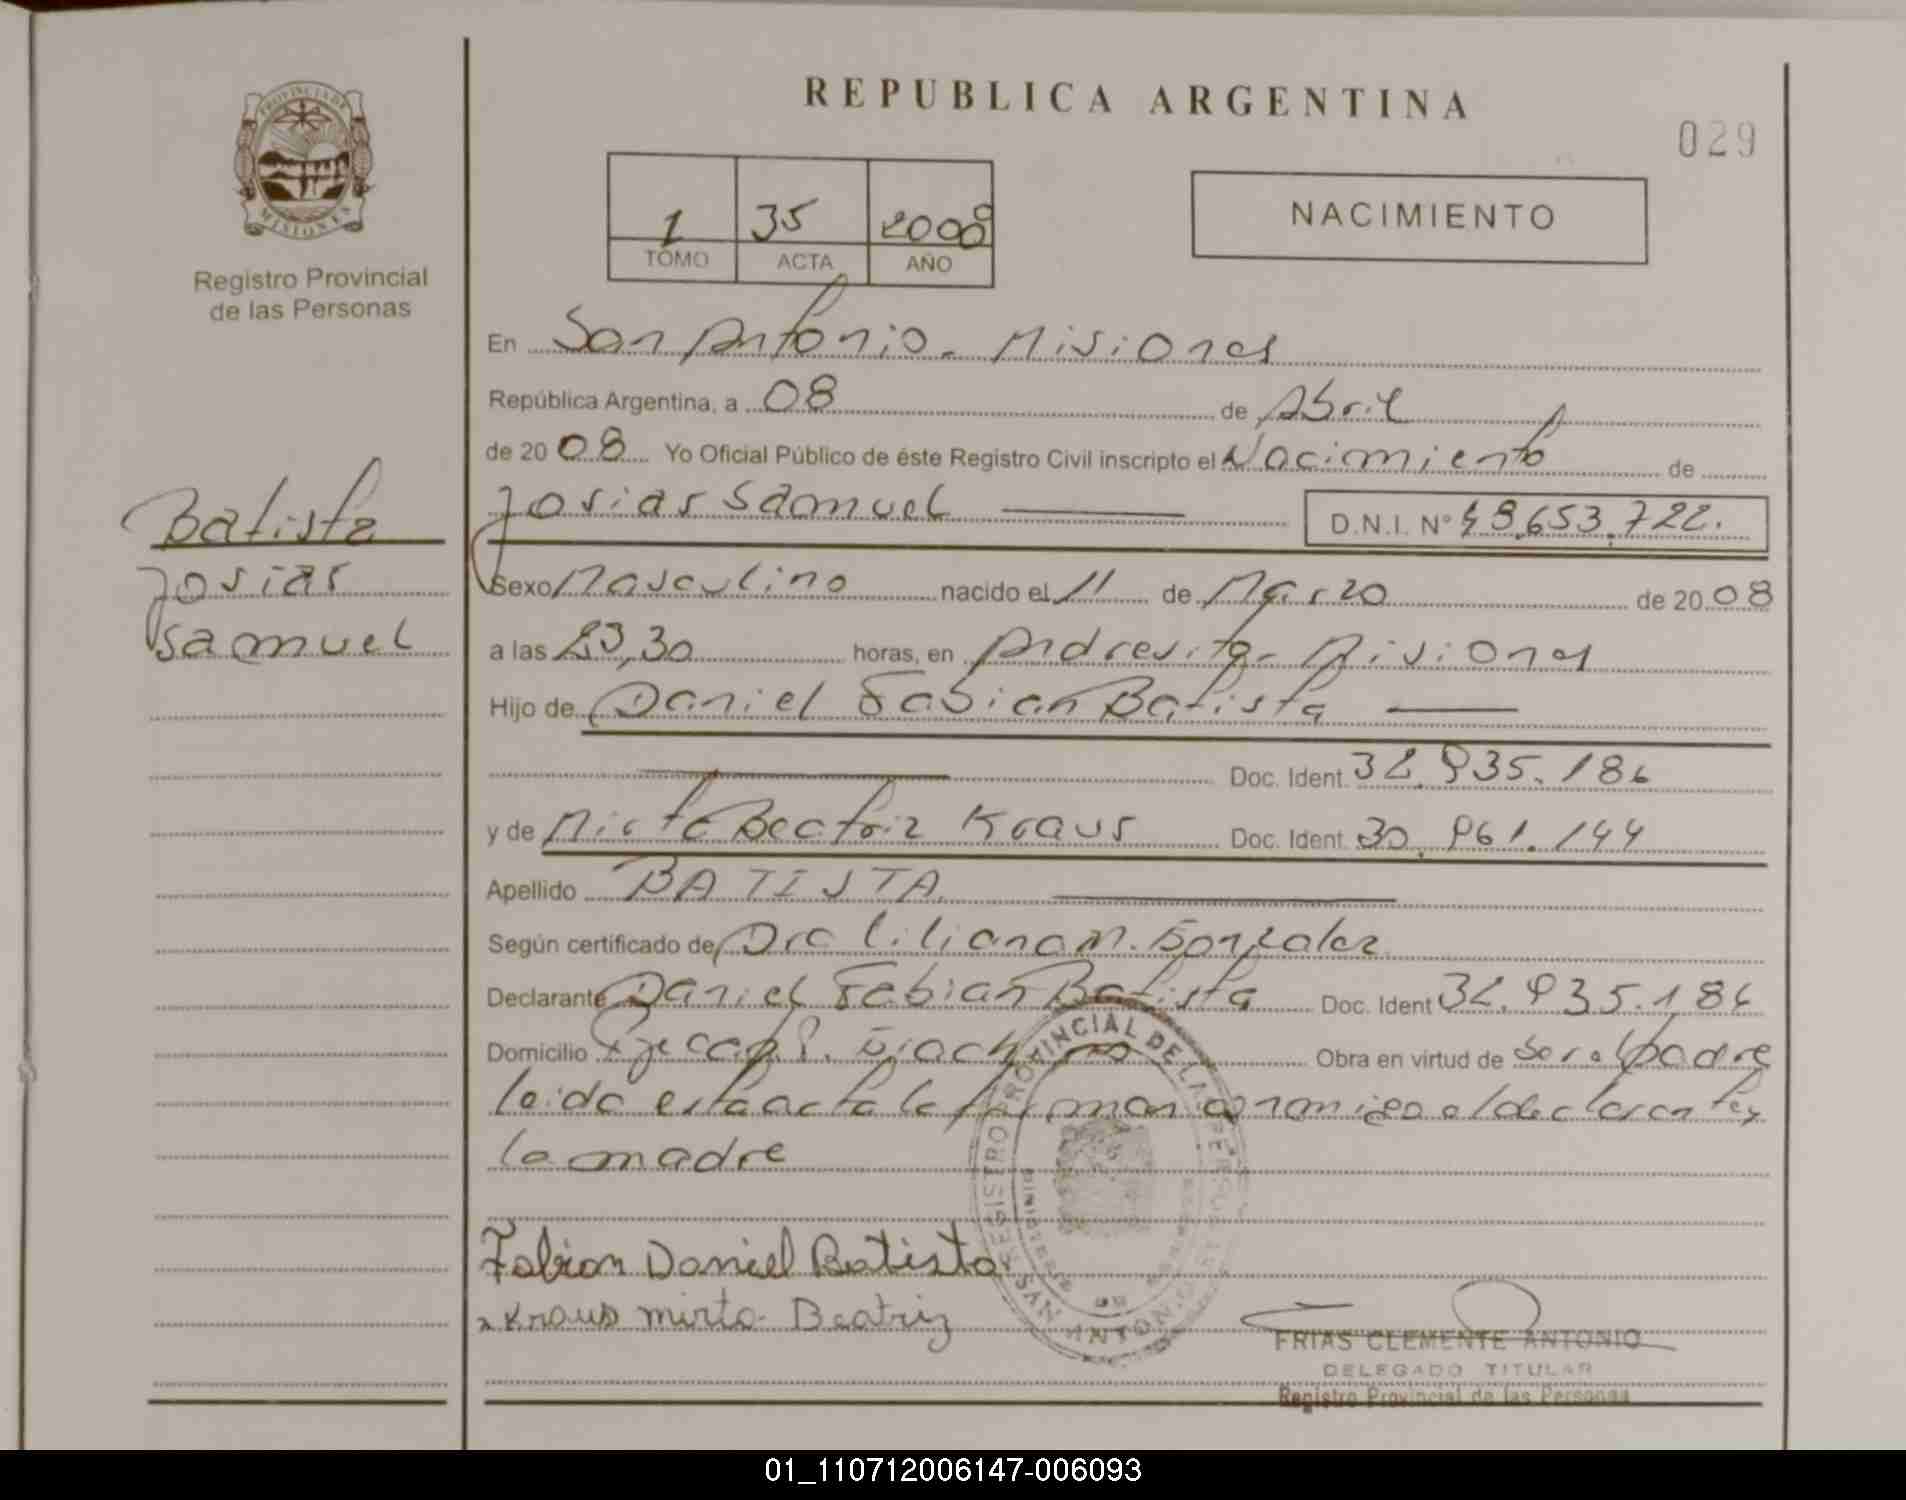 REPUBLICA ARGENTINA
029
PROVINCIA DE
MISIONES
Registro Provincial
de las Personas
1 35 2008
TOMO ACTA AÑO
NACIMIENTO
En San Antonio - Misiones
República Argentina, a 08 de Abril
de 20 08 Yo Oficial Público de éste Registro Civil inscripto el Nacimiento de
Josias Samuel D.N.I. Nº 48.653.722.
Batista
Josias
Samuel
Sexo Masculino nacido el 11 de Marzo de 20 08
a las 23,30 horas, en Andresito - Misiones
Hijo de Daniel Fabian Batista
Doc. Ident. 32.935.186
y de Mirta Beatriz Kraus Doc. Ident. 30.961.144
Apellido BATISTA
Según certificado de Dra Liliana M. Gonzalez
Declarante Daniel Fabian Batista Doc. Ident 32.935.186
Domicilio Obra en virtud de ser el padre
leida esta acta la firman conmigo el declarante y
la madre
Fabian Daniel Batista
Kraus mirta Beatriz
REGISTRO PROVINCIAL DE LAS PERSONAS
SAN ANTONIO
FRIAS CLEMENTE ANTONIO
DELEGADO TITULAR
Registro Provincial de las Personas
01_110712006147-006093